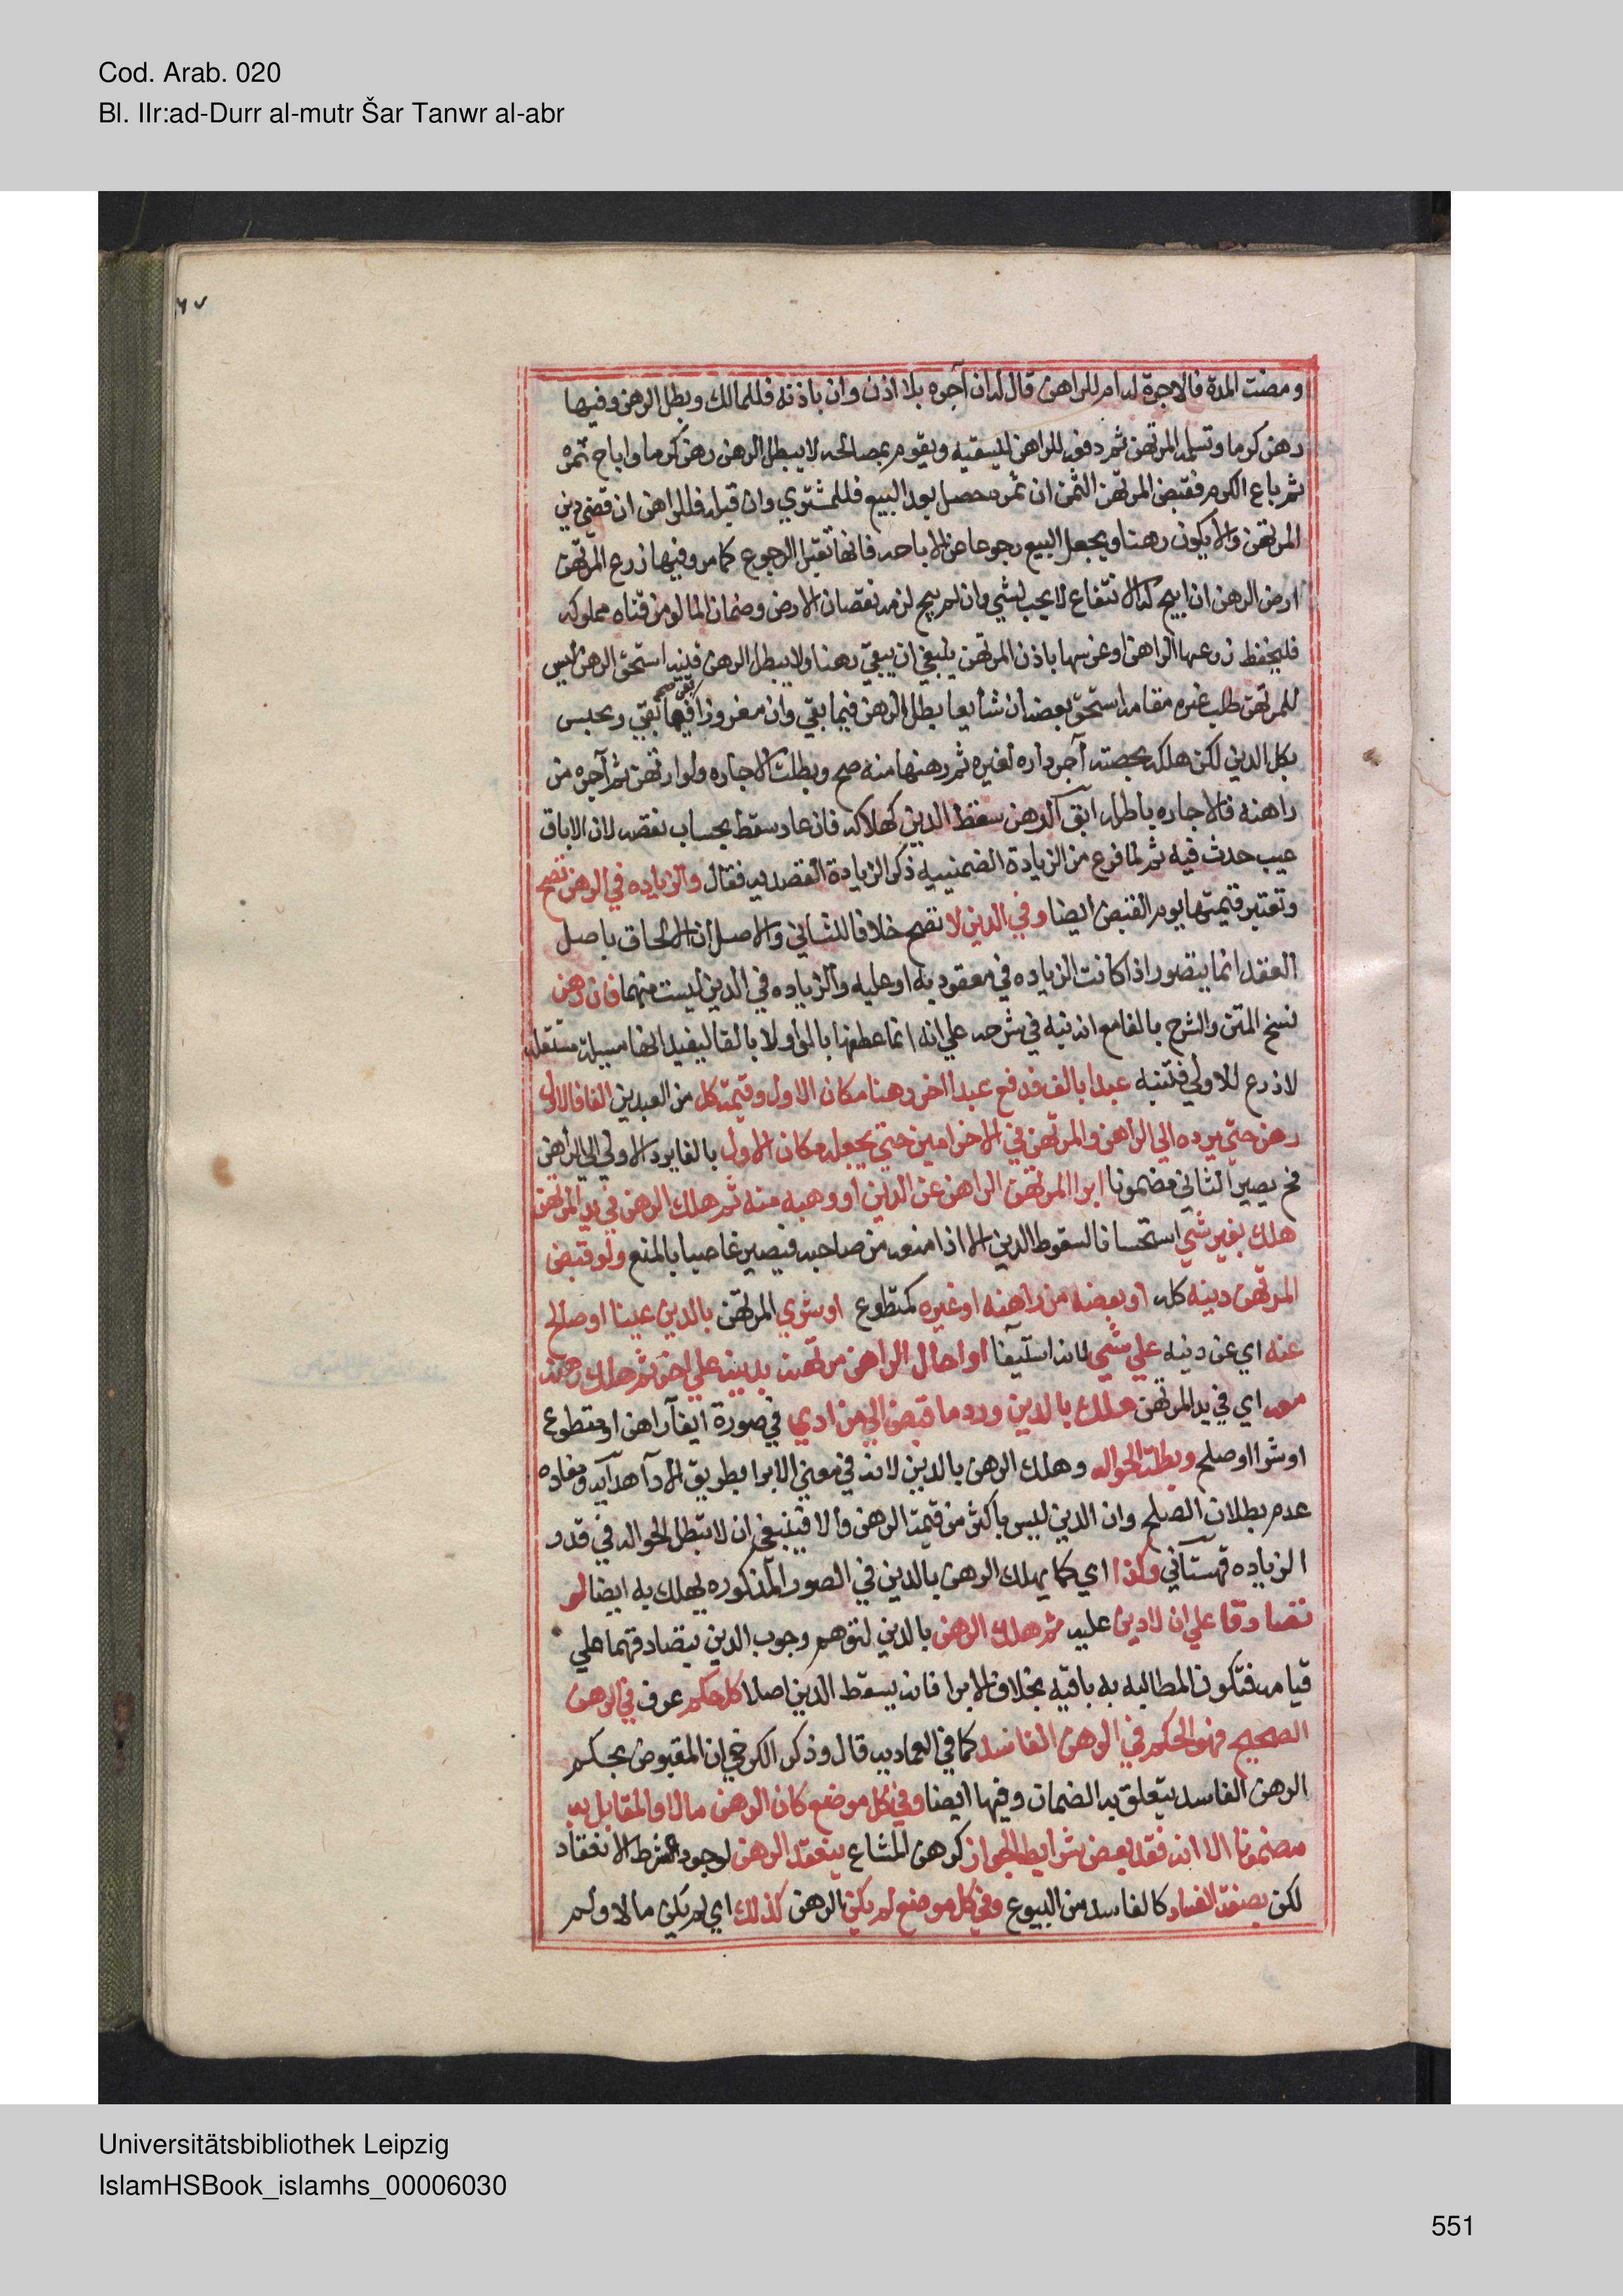 Cod. Arab. 020
Bl. IIr:ad-Durr al-mutr Šar Tanwr al-abr
ومضت المدة فالاجرة له ام للراهن قال له ان آجره بلا اذن وان باذنه فللمالك وبطل الرهن وفيها
رهن كرما وتسلمه المرتهن ثم دفعه للراهن ليسقيه ويقوم بمصالحه لا يبطل الرهن رهن كرما واباح ثمره
ثم باع الكرم فقبض المرتهن الثمن ان ثمره حصل بعد البيع فللمشتري وان قبله فللراهن ان قضي دين
المرتهن والا يكون رهنا ويجعل البيع رجوعا عن الاباحه فانها تقبل الرجوع كما مر وفيها زرع المرتهن
ارض الرهن ان ابيح له الانتفاع لا يجب شي وان لم يبح لزمه نقصان الارض وضمان الما لو من قناه مملوكه
فليحفظ زرعها الراهن او غرسها باذن المرتهن ينبغي ان يبقي رهنا ولا يبطل الرهن استحق الرهن ليس
للمرتهن طلب غيره مقامه استحق بعضه ان شايعا يطل الرهن فيما بقي وان مفروزا بقي فيما بقي ويحبس
بكل الدين لكن هلكه بحصته آجر داره لغيره ثم رهنها منه صح وبطلت الاجاره ولو ارتهن ثم آجره من
راهنه فالاجاره باطله ابق الرهن سقط الدين كهلاكه فان عاد سقط بحساب نقصه لان الاباق
عيب حدث فيه ثم لما فرع من الزيادة الضمنييه ذكر الزيادة القصديه فقال والزياده في الرهن تصح
وتعتبر قيمتها يوم القبض ايضا وفي الدين لا تصح خلافا للثاني والاصل ان الالحاق باصل
العقد انما يتصور اذا كانت الزياده في معقود به او عليه والزياده في الدين ليست منهما فان رهن
نسخ المتن والشرح بالفا مع انه نبه في شرحه علي انه انما عطفها بالواو لا بالفا ليفيد انها مسيلة مستقله
لا فرع للاولي فتنبه عبدا بالف فدفع عبدا اخر رهنا مكان الاول وقيمة كل من العبدين الفا فالاول
رهن حتي يرده الي الراهن والمرتهن في الاخر امين حتي يجعله مكان الاول بالفا يرد الاولي الي الراهن
فح يصير الثاني مضمونا ابرا المرتهن الراهن عن الدين او وهبه منه ثم هلك الرهن في يد المرتهن
هلك بغير شي استحسانا لسقوط الدين الا اذا منعه من صاحبه فيصير غاصبا بالمنع ولو قبض
المرتهن دينه كله او بعضه من راهنه او غيره كمتطوع او شري المرتهن بالدين عينا او صلح
عنه اي عن دينه علي شي لانه استيفا او احال الراهن مرتهنه بدينه علي اخر ثم هلك رهنه
معه اي في يد المرتهن هلك بالدين ورد ما قبض الي من ادي في صورة ايفآ راهن او متطوع
او شرا او صلح وبطلت الحواله وهلك الرهن بالدين لانه في معني الابرا بطريق الادآ هدآيه ومفاده
عدم بطلان الصلح وان الدين ليس باكثر من قيمة الرهن والا فينبغي ان لا تبطل الحواله في قدر
الزياده قهستآني وكذا اي كما يهلك الرهن بالدين في الصور المذكوره يهلك به ايضا لو
تصادقا علي ان لا دين عليه ثم هلك الرهن بالدين لتوهم وجوب الدين بتصادقهما علي
قيامه فتكون المطالبه به باقيه بخلاف الابرا فانه يسقط الدين اصلا كل حكم عرف في الرهن
الصحيح فهو الحكم في الرهن الفاسد كما في العماديه قال وذكر الكرخي ان المقبوض بحكم
الرهن الفاسد يتعلق به الضمان وفيها ايضا وفي كل موضع كان الرهن مالا والمقابل به
مضمونا الا انه فقد بعض شرايط الجواز كرهن المشاع ينعقد الرهن لوجود شرط الانعقاد
لكن بصفة الفساد كالفاسد من البيوع وفي كل موضع لم يكن الرهن كذلك اي لم يكن مالا ولم
Universitätsbibliothek Leipzig
IslamHSBook_islamhs_00006030
551